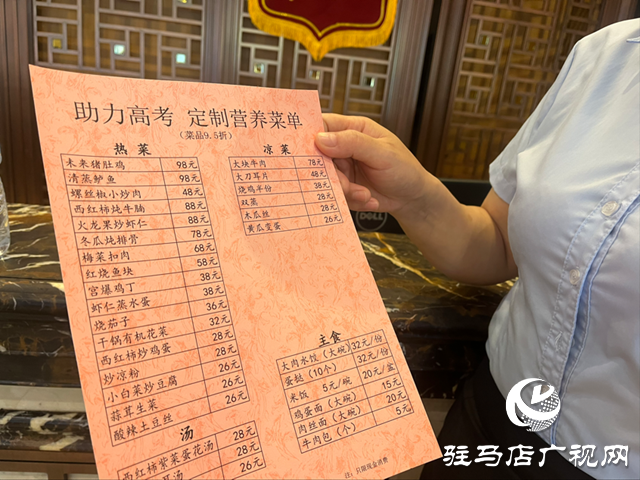 助力高考 定制营养菜单
（菜品9.5折）
热菜
未来猪肚鸡 98元
清蒸鲈鱼 98元
螺丝椒小炒肉 48元
西红柿炖牛腩 88元
火龙果炒虾仁 88元
冬瓜炖排骨 78元
梅菜扣肉 68元
红烧鱼块 58元
宫爆鸡丁 38元
虾仁蒸水蛋 38元
烧茄子 36元
干锅有机花菜 32元
西红柿炒鸡蛋 28元
炒凉粉 28元
小白菜炒豆腐 26元
蒜茸生菜 26元
酸辣土豆丝 26元
汤
西红柿紫菜蛋花汤 28元
28元
汤 26元
凉菜
大块牛肉 78元
大刀耳片 48元
烧鸡半份 38元
双蒸 28元
木瓜丝 28元
黄瓜变蛋 26元
主食
大肉水饺（大碗） 32元/份
蛋挞（10个） 32元/份
米饭 5元/碗 20元/盆
鸡蛋面（大碗） 15元
肉丝面（大碗） 20元
牛肉包（个） 5元
注：只限现金消费
DELL
驻马店广视网